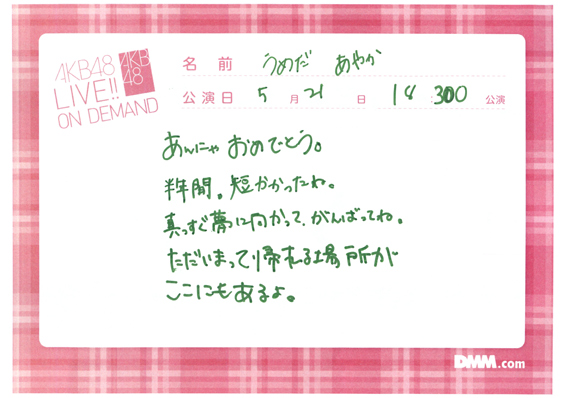 AKB48
LIVE!!
ON DEMAND
AKB
48
名 前 うめだ あやか
公演日 5 月 21 日 18:300 公演
あんにゃ おめでとう。
半年間。短かかったね。
真っすぐ夢に向かって、がんばってね。
ただいまって帰れる場所が
ここにもあるよ。
DMM.com